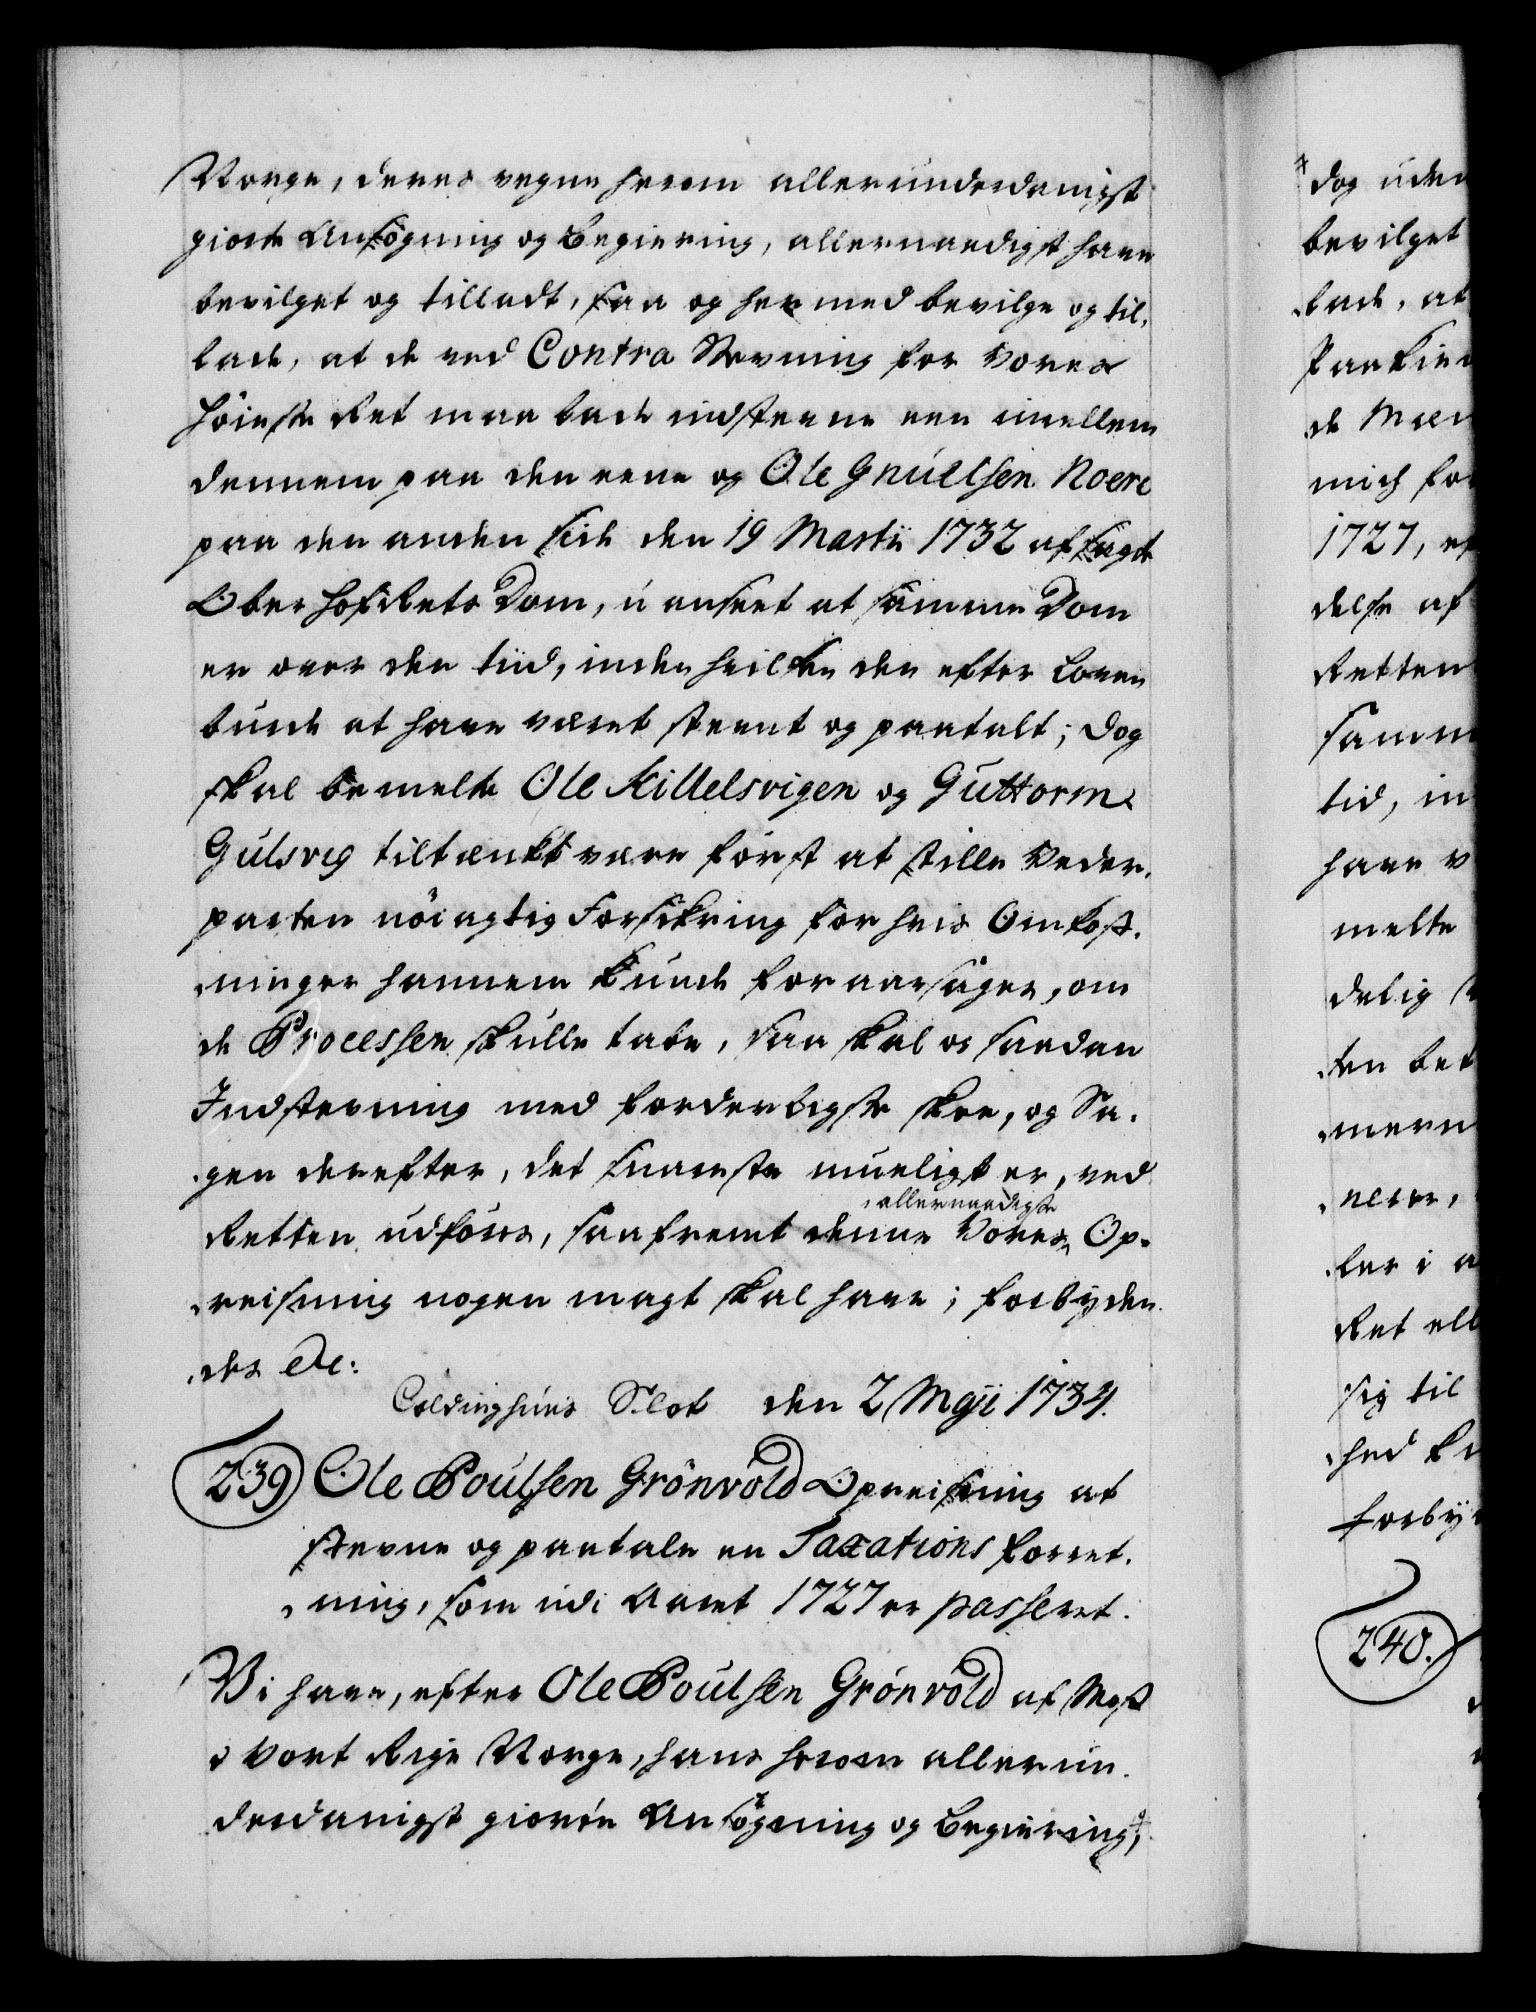 Norge, deres vegne herom allerunderdanigst
giorte Ansøgning og Begiering, allernaadigst have
bevilget og tilladt, saa og hermed bevilge og til,
lade, at de ved Contra Stevning for Vores
Høieste Ret maa lade indstevne een imellem
dennem paa den eene og Ole Gnúelsen Noere
paa den anden side den 19 Martii 1732 afsagt
Ober Hofrets Dom, uanseet at samme Dom
er over den tiid, inden hvilken den efter Loven
burde at have været stevnt og paatalt; Dog
skal bemelte Ole Killelsvigen og Guttorm
Gulsvig tiltænkt være først at stille Veder,
parten nöiagtig Forsikring for hvis Omkost,
ninger hannem kunde foraarsages, om
de Processen skulle tabe, saa skal og saadan
Indstevning med forderligste skee, og Sa,
gen derefter, det snareste mueligt er, ved
Retten udføres, saafremt denne Vores allernaadigste Op,
reisning nogen magt skal have; forbyden,
des etc:
Coldinghuus Slot den 2 Maji 1734.
239 Ole Poulsen Grönvold Opreisning at
stevne og paatale en Taxations forret,
ning, som udi Aaret 1727 er passeret.
Vi have, efter Ole Poulsen Grönvold af
i Vort Rige Norge, hans herom allerun,
derdanigst giorte Ansøgning og Begiering,
dog uden
bevilget
lade, at
de
1727,
delse af
Retten
samm
tid, in
have v
melte
delig
ten bet
ler i a
Ret ell
sig til
hed
forby
240.